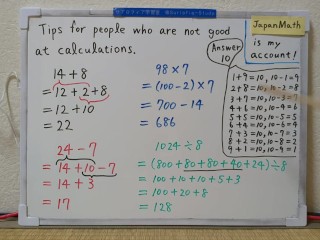 Tips for people who are not good
at calculations.
Answer
10
JapanMath
is my
account!
14+8
=12+2+8
=12+10
=22
98×7
=(100-2)×7
=700-14
=686
1+9=10, 10-1=9
2+8=10, 10-2=8
3+7=10, 10-3=7
4+6=10, 10-4=6
5+5=10, 10-5=5
6+4=10, 10-6=4
7+3=10, 10-7=3
8+2=10, 10-8=2
9+1=10, 10-9=1
24-7
=14+10-7
=14+3
=17
1024÷8
=(800+80+80+40+24)÷8
=100+10+10+5+3
=100+20+8
=128